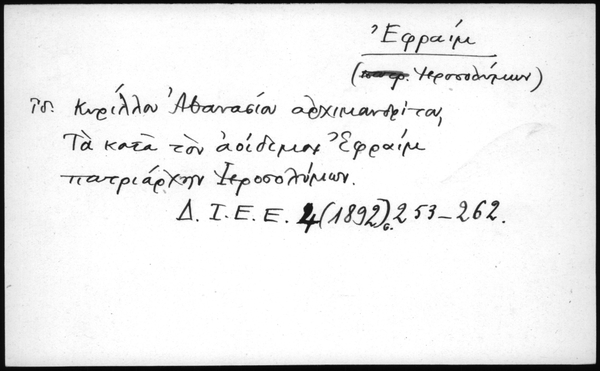 Ἐφραίμ
( Ἱεροσολύμων)
Κυρίλλου Ἀθανασίου ἀρχιμανδρίτου,
Τὰ κατὰ τὸν ἀοίδιμον Ἐφραίμ
πατριάρχην Ἱεροσολύμων.
Δ. Ι. Ε. Ε. 4 (1892) σ. 253-262.